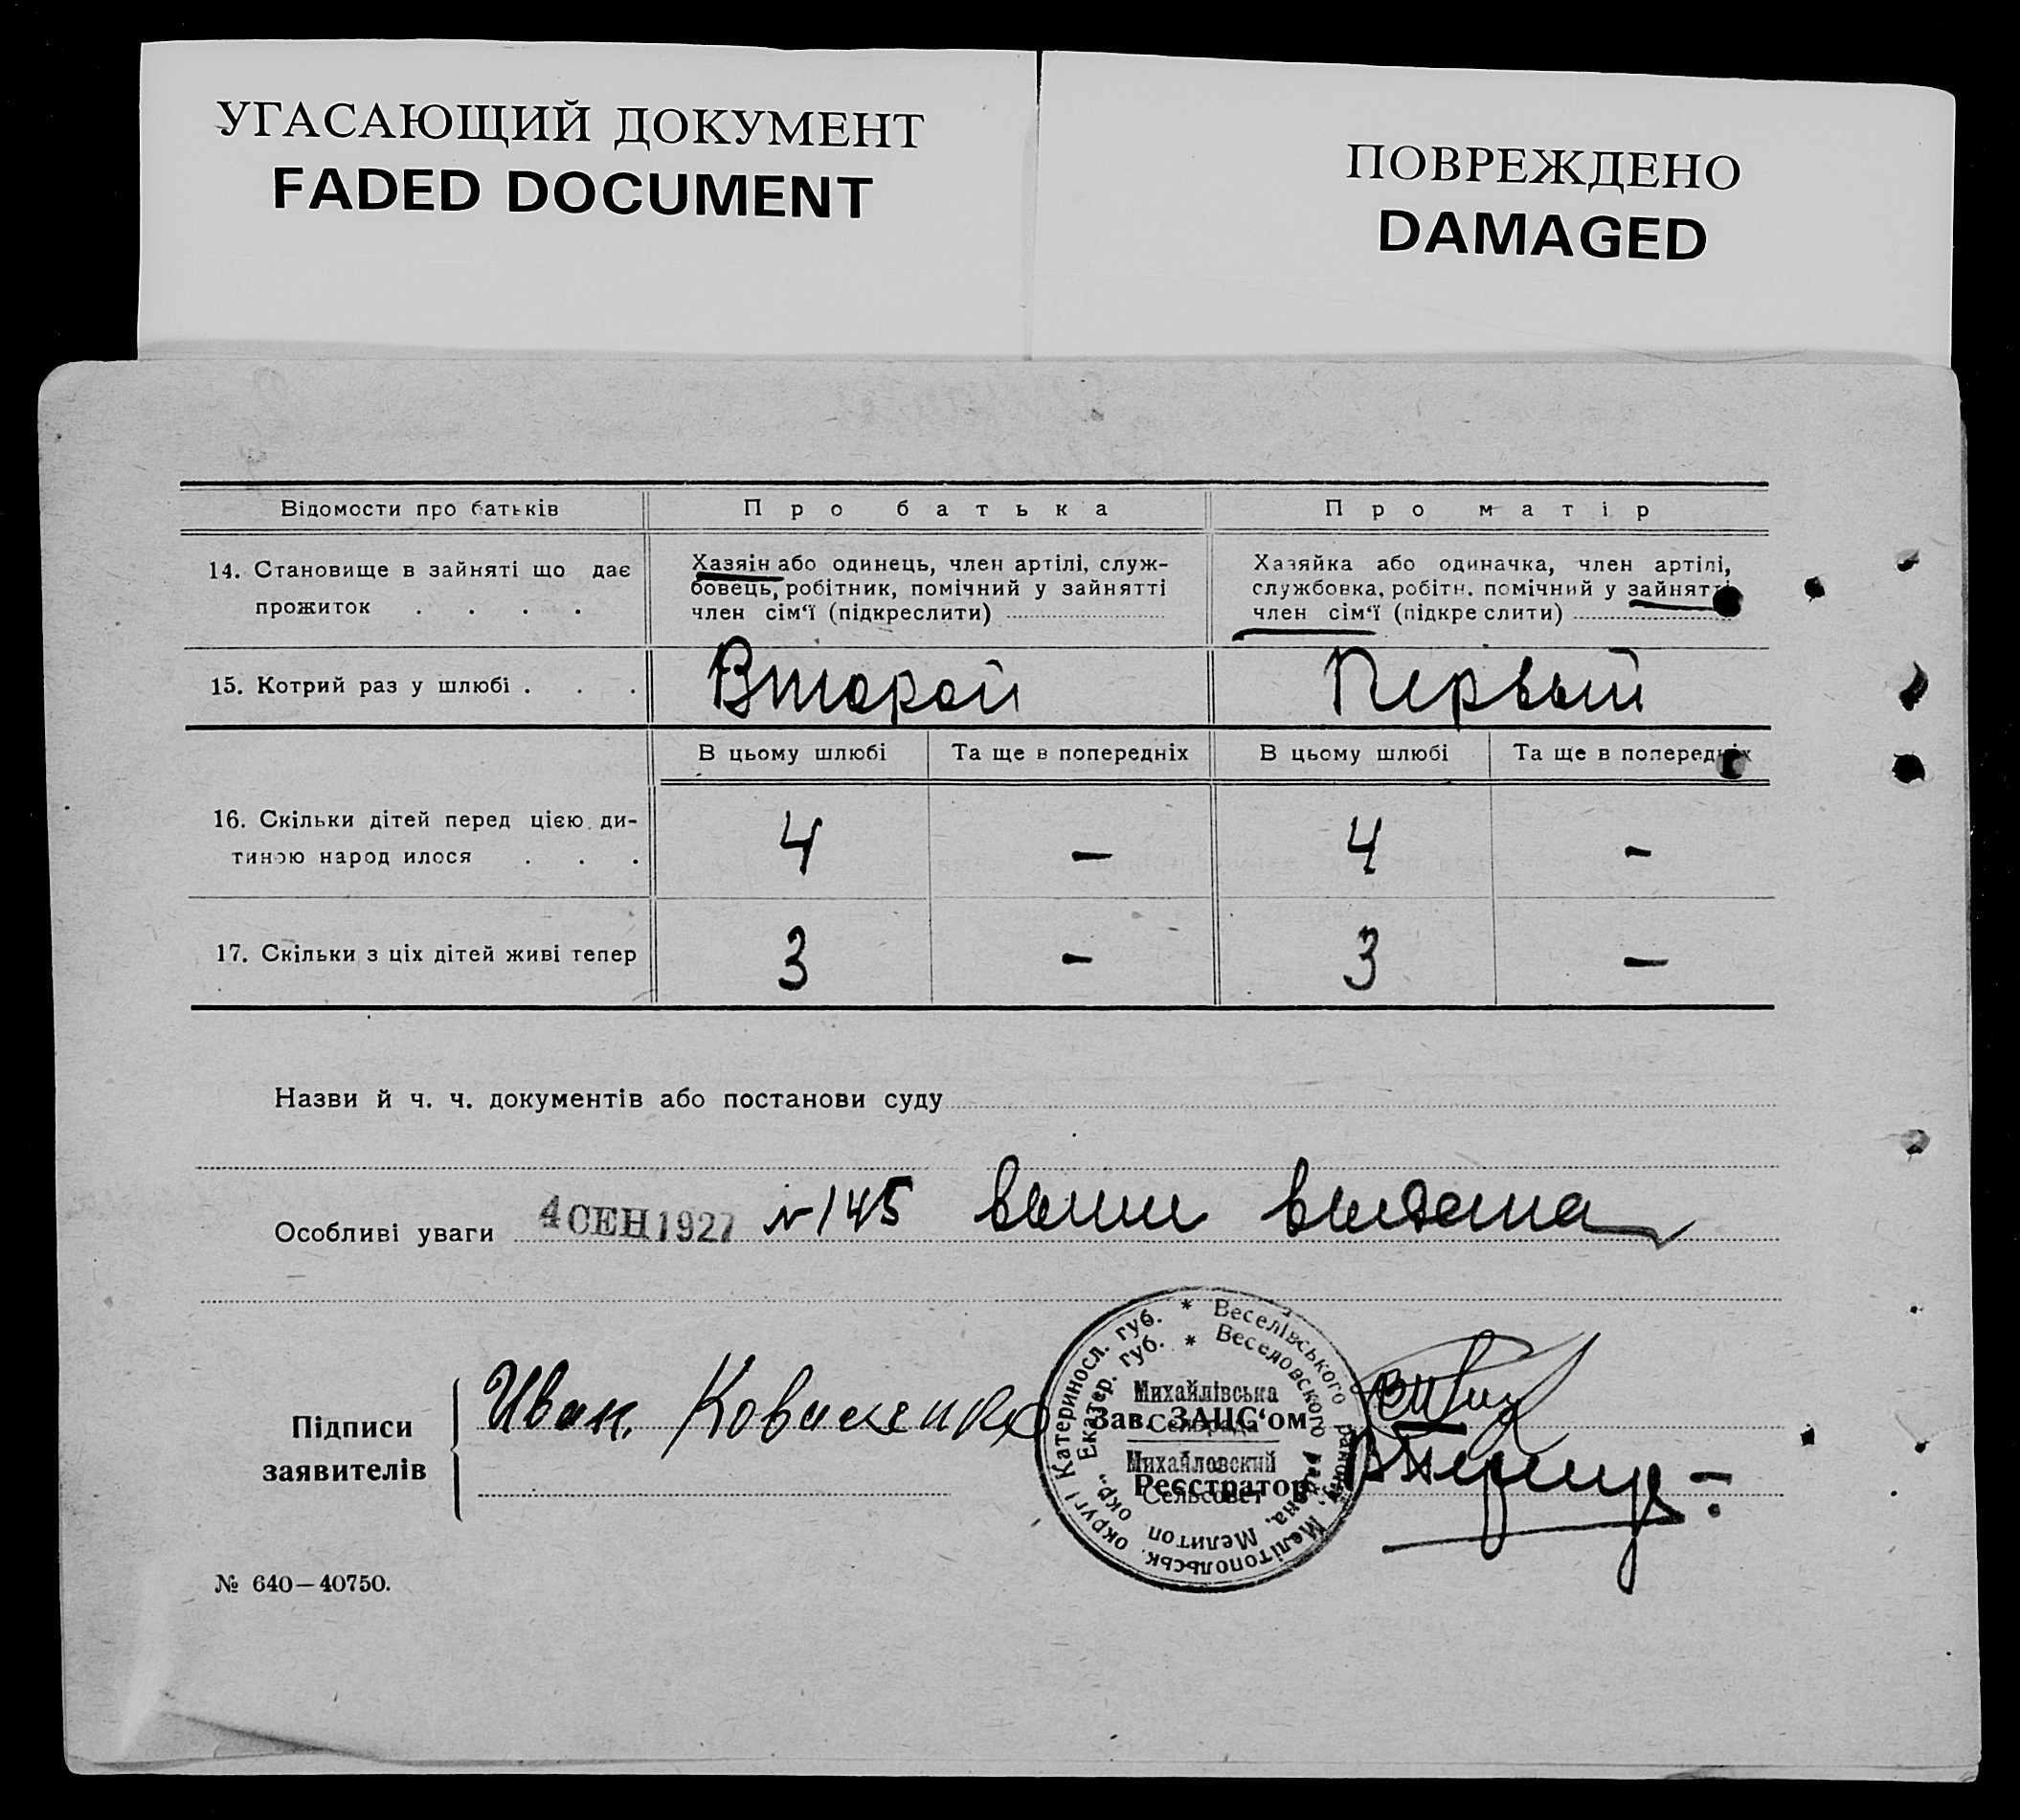 УГАСАЮЩИЙ ДОКУМЕНТ
FADED DOCUMENT
ПОВРЕЖДЕНО
DAMAGED
Відомости про батьків
Про батька
Про матір
14. Становище в зайняті що дає
прожиток . . . .
Хазяін або одинець, член артілі, служ-
бовець, робітник, помічний у зайнятті
член сім‘ї (підкреслити)
Хазяйка або одиначка, член артілі,
службовка, робітн. помічний у зайнятті
член сім‘ї (підкреслити)
15. Котрий раз у шлюбі . . .
Второй
Первый
В цьому шлюбі
Та ще в попередніх
В цьому шлюбі
Та ще в попередніх
16. Скільки дітей перед цією ди-
тиною народилося . . .
4
–
4
–
17. Скільки з ціх дітей живі тепер
3
–
3
–
Назви й ч. ч. документів або постанови суду
Особливі уваги 4 СЕН 1927 № 145
Підписи
заявителів
Иван Коваленко
Зав. ЗАЦС‘ом
Реєстратор
* Веселівського району, Мелітопольськ. округі Катериносл. губ.
* Веселовского района, Мелитоп. окр., Екатер. губ.
Михайлівська
Сельрада
Михайловский
Сельсовет
№ 640—40750.